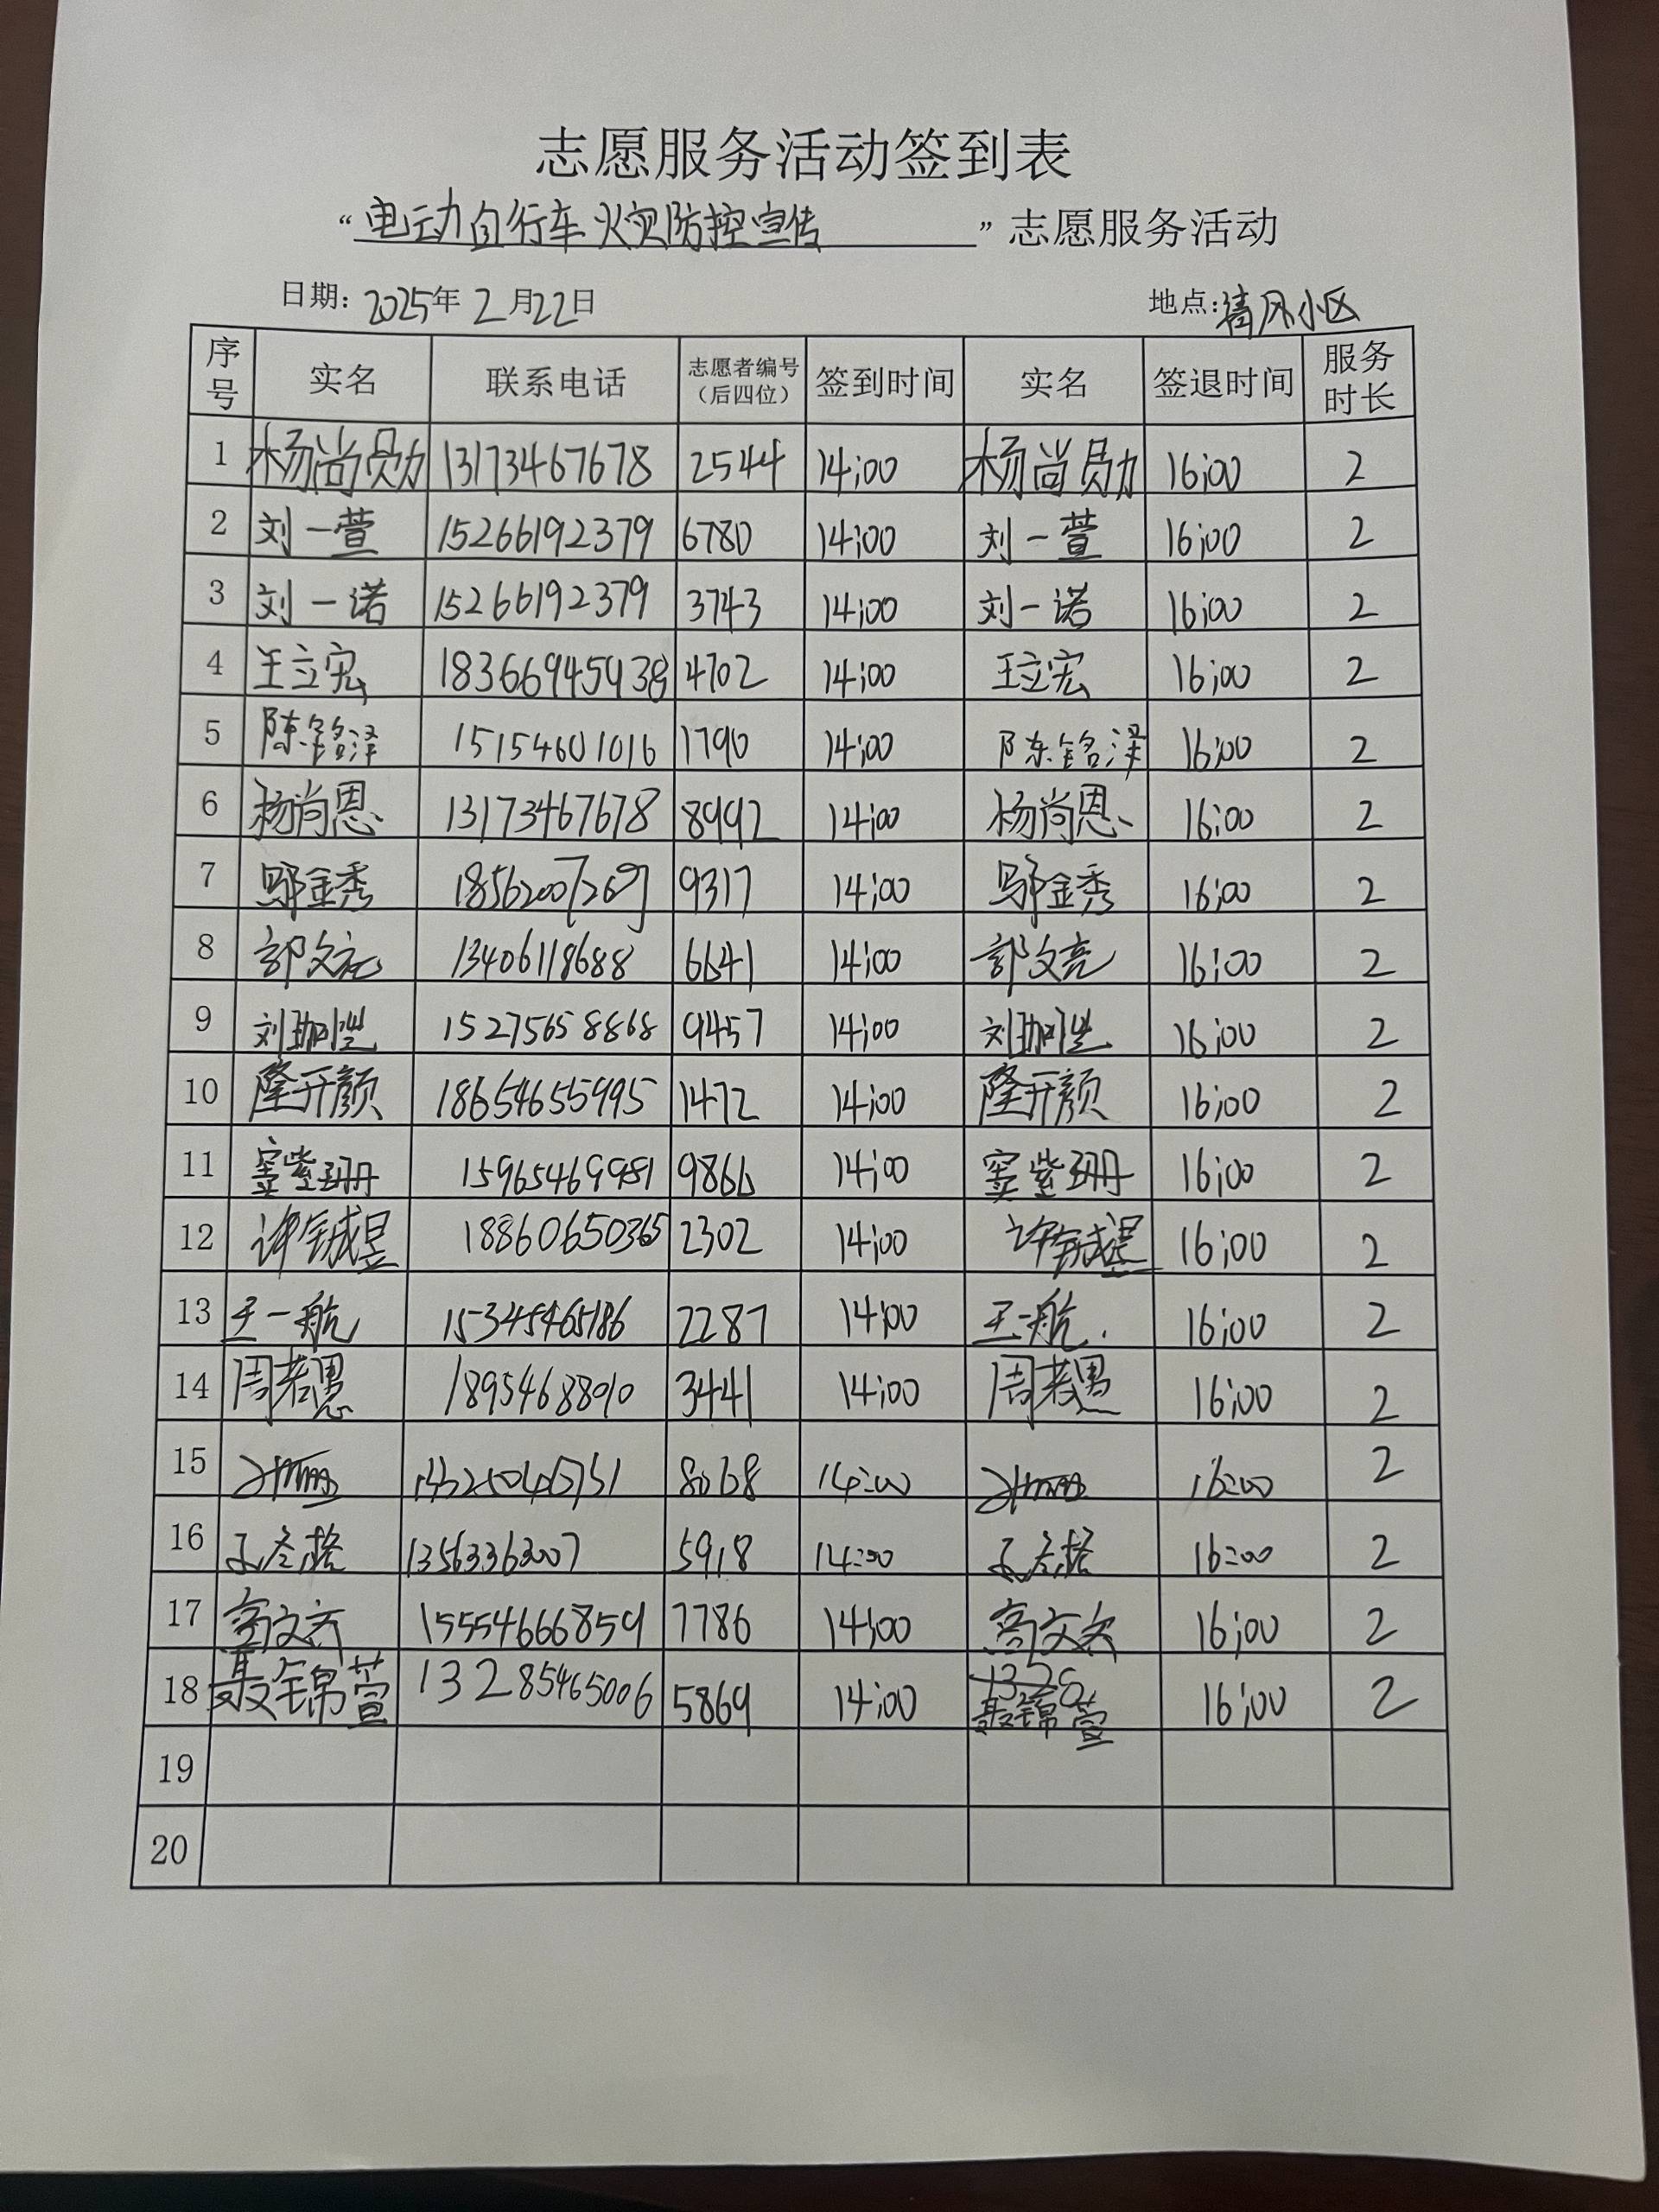 志愿服务活动签到表
“电动自行车火灾防控宣传”志愿服务活动
日期：2025年2月22日 地点：清风小区
序号 实名 联系电话 志愿者编号（后四位） 签到时间 实名 签退时间 服务时长
1 杨尚勋 13173467678 2544 14:00 杨尚勋 16:00 2
2 刘一萱 15266192379 6780 14:00 刘一萱 16:00 2
3 刘一诺 15266192379 3743 14:00 刘一诺 16:00 2
4 王立宏 18366945938 4702 14:00 王立宏 16:00 2
5 陈铭泽 15154601016 1790 14:00 陈铭泽 16:00 2
6 杨尚恩 13173467678 8992 14:00 杨尚恩 16:00 2
7 邬金秀 18562007269 9317 14:00 邬金秀 16:00 2
8 郭文亮 13406118688 6641 14:00 郭文亮 16:00 2
9 15275658868 9457 14:00 16:00 2
10 隆开颜 18654655995 1472 14:00 隆开颜 16:00 2
11 窦紫珊 15965469981 9866 14:00 窦紫珊 16:00 2
12 许铖昱 18860650365 2302 14:00 许铖昱 16:00 2
13 王一航 15345465186 2287 14:00 王一航 16:00 2
14 周若愚 3441 14:00 周若愚 16:00 2
15 8068 14:00 16:00 2
16 13563363007 5918 14:00 16:00 2
17 15554666859 7786 14:00 16:00 2
18 聂锦萱 13285465006 5869 14:00 聂锦萱 16:00 2
19
20